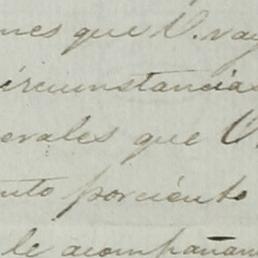 nes que V. vay
circunstancias
erales que V.
nto porciento
le acompañan